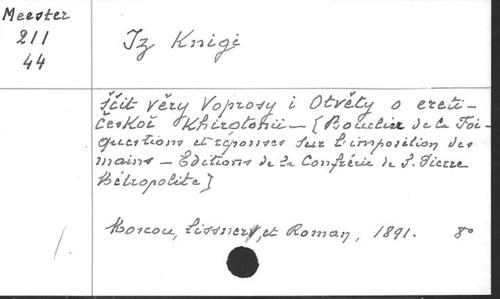 Meester
211
44
Iz Knigi
Ščit věry Voprosy i Otvěty o ereti-
českoč Khirotonii — [Bouclier de la Foi-
questions et réponses sur l'imposition des
mains — Editions de la Confrérie de S. Pierre
Métropolite]
Moscou, Lissner, et Roman, 1891. 8º